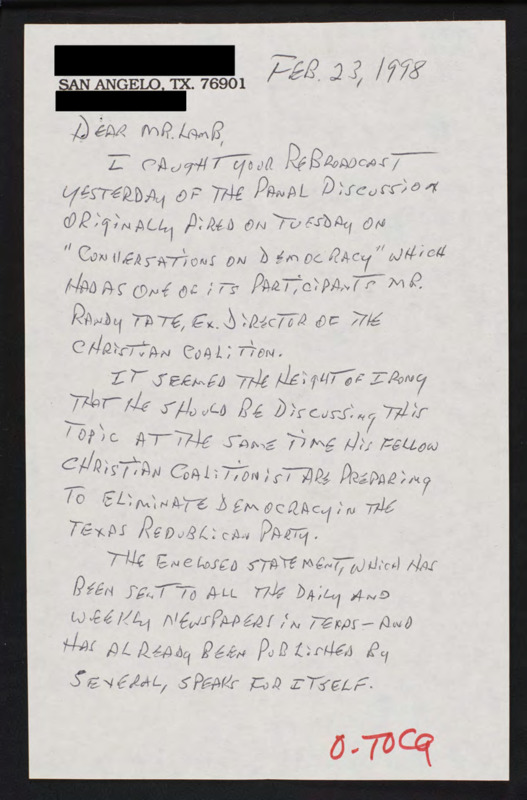 SAN ANGELO, TX. 76901
FEB. 23, 1998
DEAR MR. LAMB,
I CAUGHT YOUR REBROADCAST
YESTERDAY OF THE PANAL DISCUSSION
ORIGINALLY AIRED ON TUESDAY ON
"CONVERSATIONS ON DEMOCRACY" WHICH
HAD AS ONE OF ITS PARTICIPANTS MR.
RANDY TATE, EX. DIRECTOR OF THE
CHRISTIAN COALITION.
IT SEEMED THE HEIGHT OF IRONY
THAT HE SHOULD BE DISCUSSING THIS
TOPIC AT THE SAME TIME HIS FELLOW
CHRISTIAN COALITIONIST ARE PREPARING
TO ELIMINATE DEMOCRACY IN THE
TEXAS REPUBLICAN PARTY.
THE ENCLOSED STATEMENT, WHICH HAS
BEEN SENT TO ALL THE DAILY AND
WEEKLY NEWSPAPERS IN TEXAS - AND
HAS ALREADY BEEN PUBLISHED BY
SEVERAL, SPEAKS FOR ITSELF.
O-TOCQ